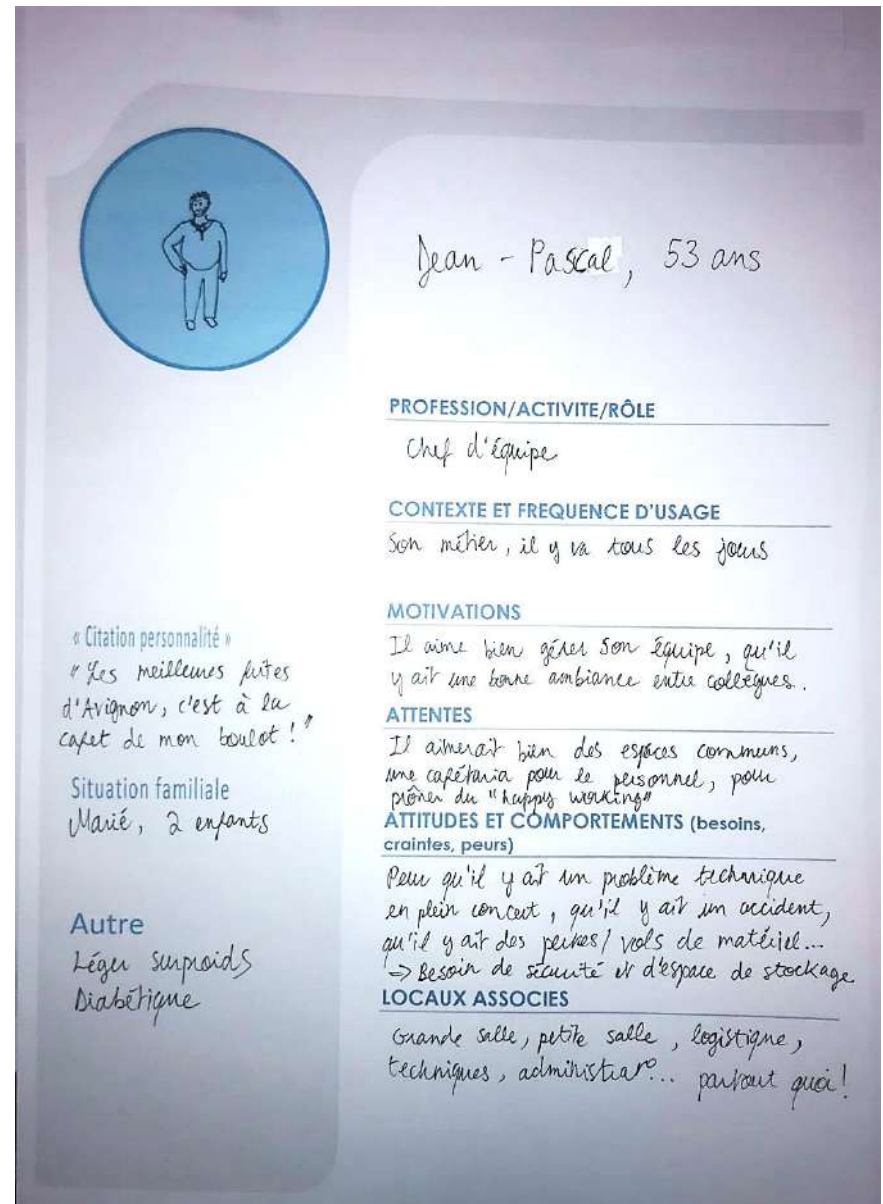 Jean - Pascal, 53 ans
PROFESSION/ACTIVITE/RÔLE
Chef d'équipe
CONTEXTE ET FREQUENCE D'USAGE
Son métier, il y va tous les jours
MOTIVATIONS
Il aime bien gérer son équipe, qu'il
y ait une bonne ambiance entre collègues.
ATTENTES
Il aimerait bien des espaces communs,
une cafétaria pour le personnel, pour
prôner du "happy working"
ATTITUDES ET COMPORTEMENTS (besoins,
craintes, peurs)
Peur qu'il y ait un problème technique
en plein concert, qu'il y ait un accident,
qu'il y ait des pertes/ vols de matériel...
=> Besoin de sécurité et d'espace de stockage
LOCAUX ASSOCIES
Grande salle, petite salle, logistique,
techniques, administrat°... partout quoi!
« Citation personnalité »
"Les meilleures frites
d'Avignon, c'est à la
cafet de mon boulot !"
Situation familiale
Marié, 2 enfants
Autre
Léger surpoids
Diabétique